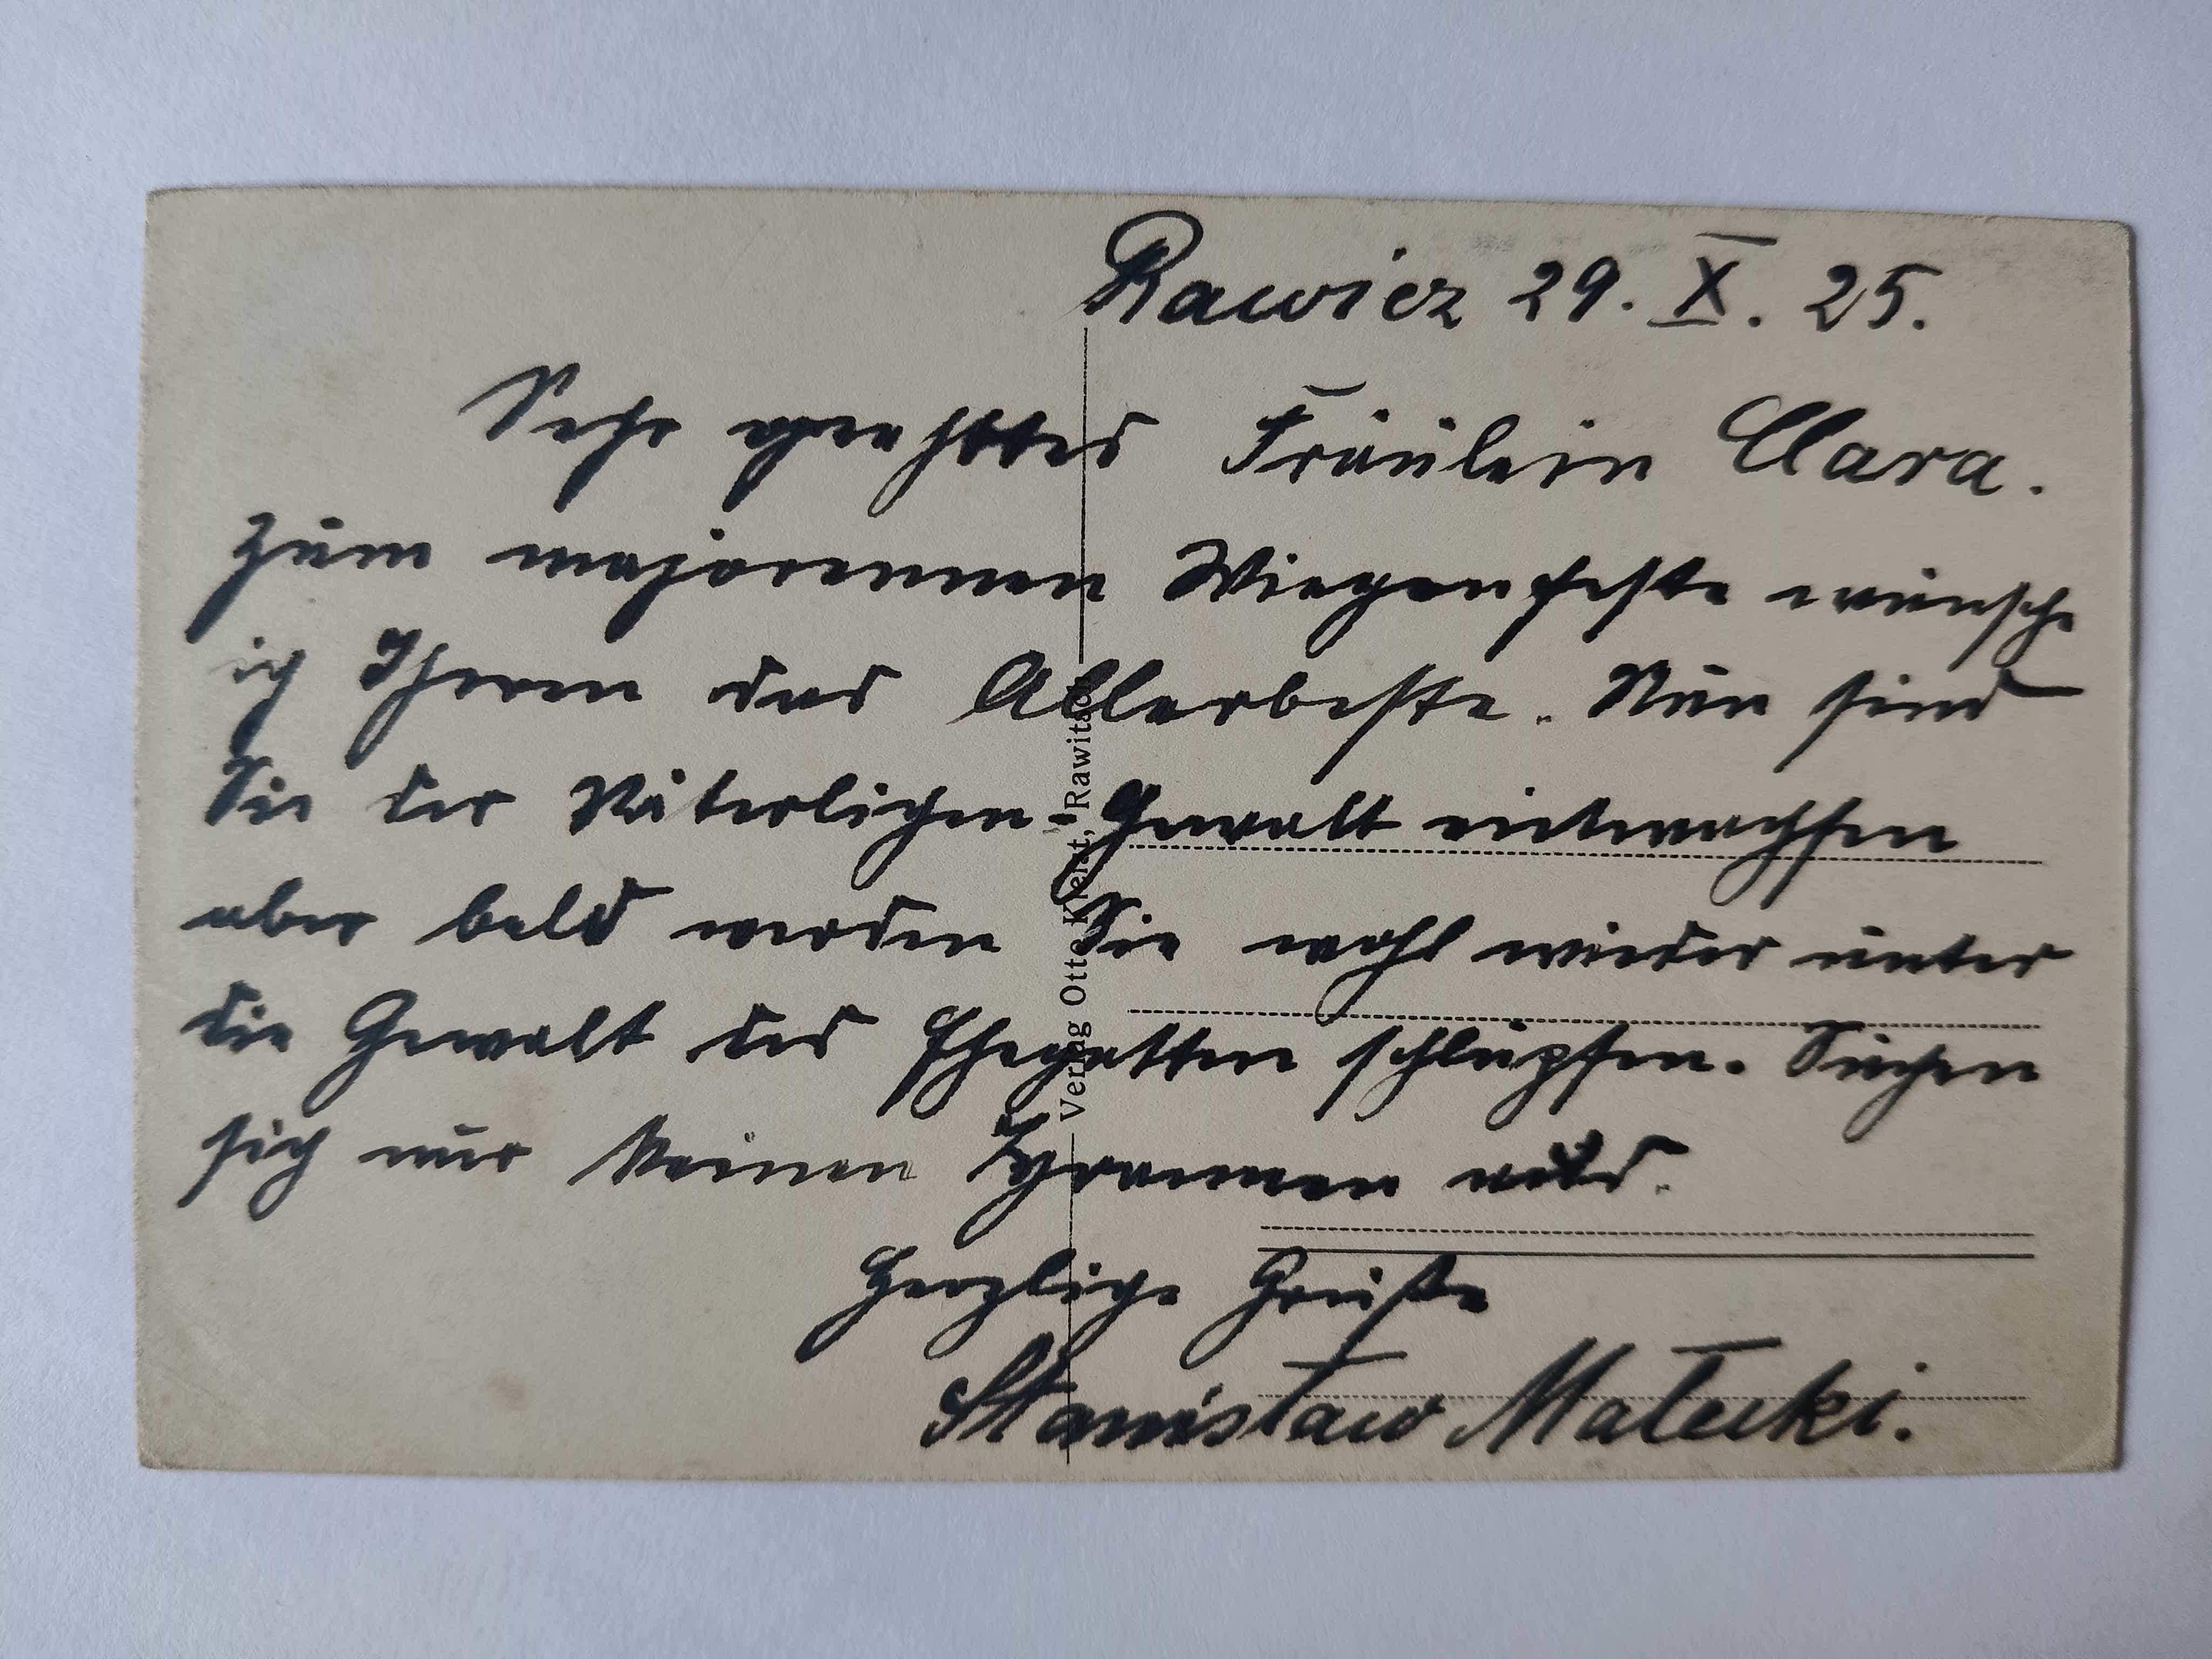 Rawicz 29. X. 25.
Sehr geehrtes Fräulein Clara.
Zum majorennen Wiegenfeste wünsche
ich Ihnen das Allerbeste. Nun sind
Sie der Väterlichen-Gewalt entwachsen
aber bald werden Sie wohl wieder unter
die Gewalt des Ehegatten schlüpfen. Suchen
sich nur keinen Tyrannen aus.
Herzliche Grüße
Stanisław Małecki.
Verlag Otto Kleinert, Rawitsch